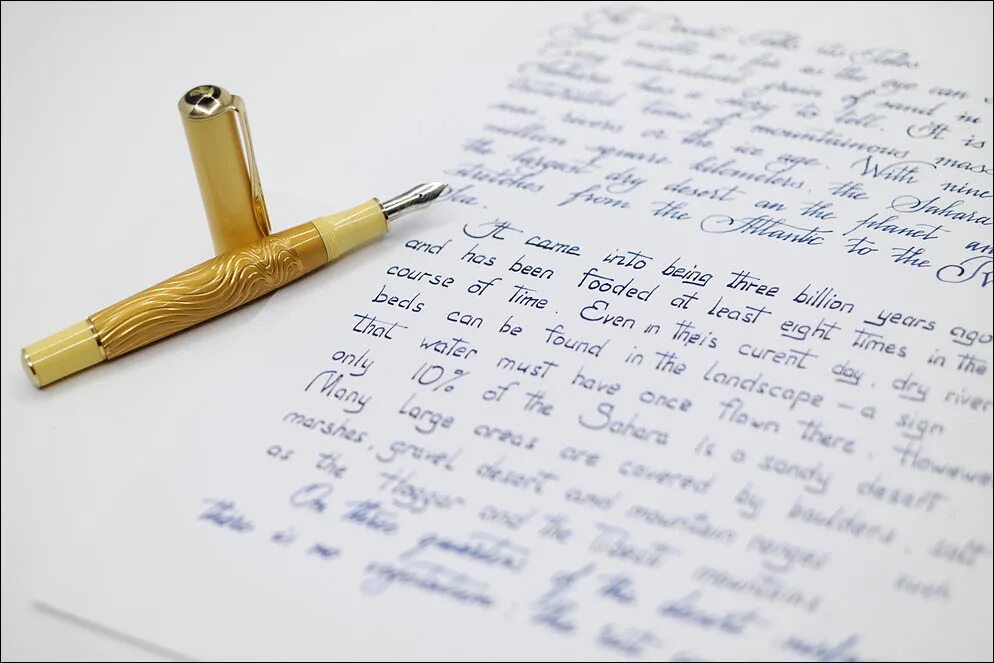 The Desert Tells its Tales
Sand
as far as the eye can
grain of sand in
Sahara has a story to tell. It is
time of mountainous mass
rivers or the ice age. With nine
million square kilometers, the Sahara
the largest dry desert on the planet an
stretches from the Atlantic to the R
Sea.
It came into being three billion years ago
and has been fooded at least eight times in the
course of time. Even in theis curent day, dry river
beds can be found in the landscape – a sign
that water must have once flown there. Howewe
only 10% of the Sahara is a sandy desert.
Many large areas are covered by boulders, salt
marshes, gravel desert and mountain ranges such
as the Hoggar and the Tibesti mountains
On three quarters of the desert
there is no vegetation, the